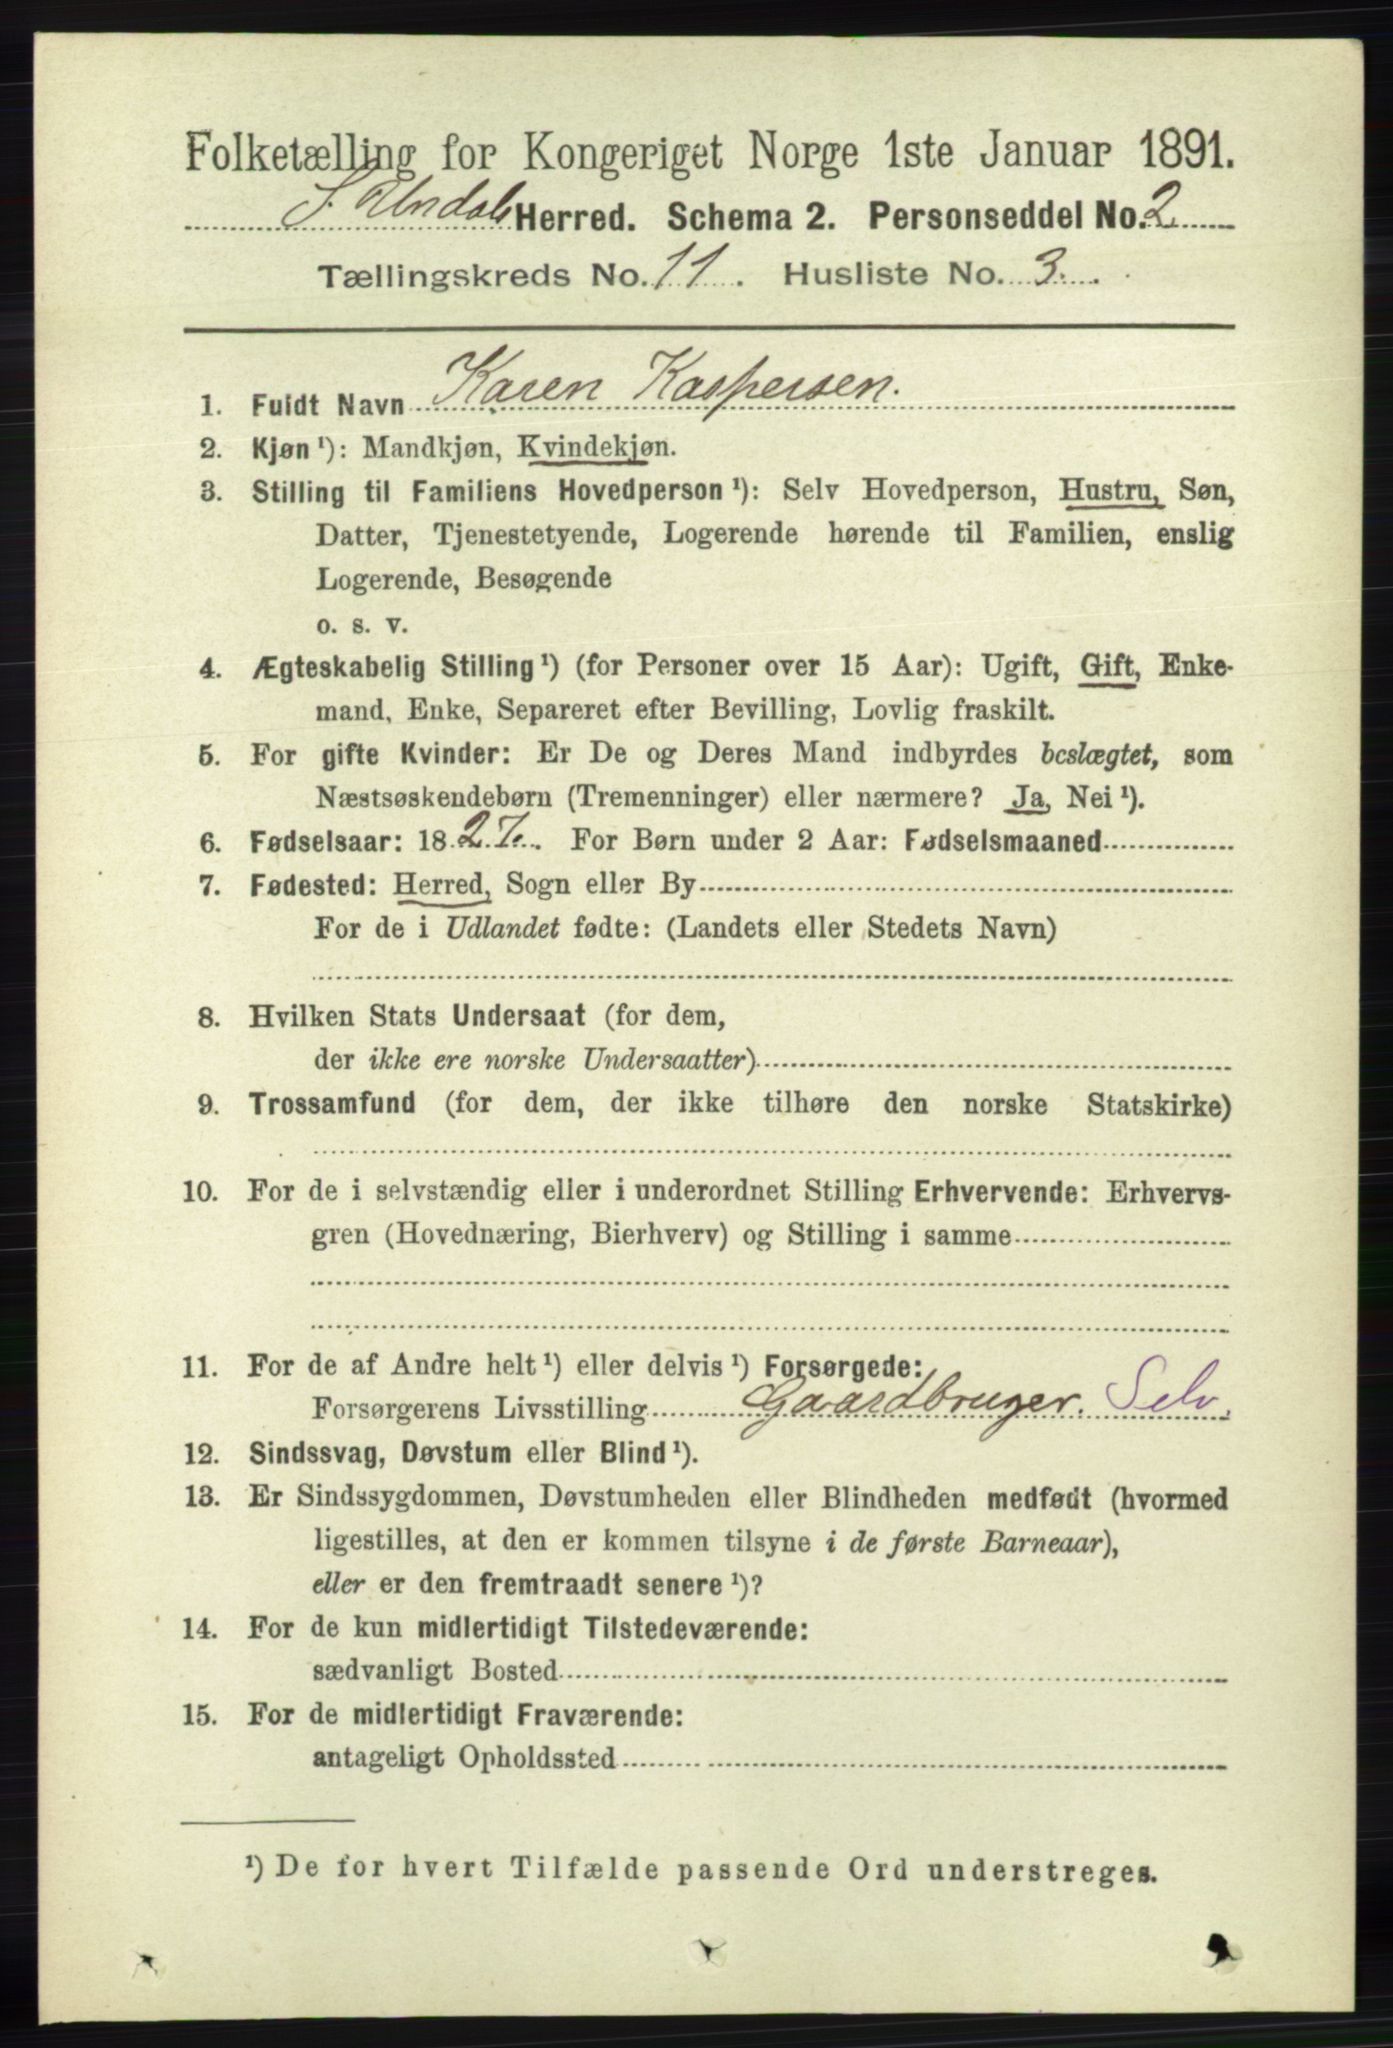 Folketælling for Kongeriget Norge 1ste Januar 1891.
S. Undal Herred. Schema 2. Personseddel No. 2
Tællingskreds No. 11. Husliste No. 3.
1. Fuldt Navn Karen Kaspersen.
2. Kjøn ¹): Mandkjøn, Kvindekjøn.
3. Stilling til Familiens Hovedperson ¹): Selv Hovedperson, Hustru, Søn,
Datter, Tjenestetyende, Logerende hørende til Familien, enslig
Logerende, Besøgende
o. s. v.
4. Ægteskabelig Stilling ¹) (for Personer over 15 Aar): Ugift, Gift, Enke-
mand, Enke, Separeret efter Bevilling, Lovlig fraskilt.
5. For gifte Kvinder: Er De og Deres Mand indbyrdes beslægtet, som
Næstsøskendebørn (Tremenninger) eller nærmere? Ja, Nei ¹).
6. Fødselsaar: 1827. For Børn under 2 Aar: Fødselsmaaned
7. Fødested: Herred, Sogn eller By
For de i Udlandet fødte: (Landets eller Stedets Navn)
8. Hvilken Stats Undersaat (for dem,
der ikke ere norske Undersaatter)
9. Trossamfund (for dem, der ikke tilhøre den norske Statskirke)
10. For de i selvstændig eller i underordnet Stilling Erhvervende: Erhvervs-
gren (Hovednæring, Bierhverv) og Stilling i samme
11. For de af Andre helt ¹) eller delvis ¹) Forsørgede:
Forsørgerens Livsstilling Gaardbruger. Selv.
12. Sindssvag, Døvstum eller Blind ¹).
13. Er Sindssygdommen, Døvstumheden eller Blindheden medfødt (hvormed
ligestilles, at den er kommen tilsyne i de første Barneaar),
eller er den fremtraadt senere ¹)?
14. For de kun midlertidigt Tilstedeværende:
sædvanligt Bosted
15. For de midlertidigt Fraværende:
antageligt Opholdssted
¹) De for hvert Tilfælde passende Ord understreges.